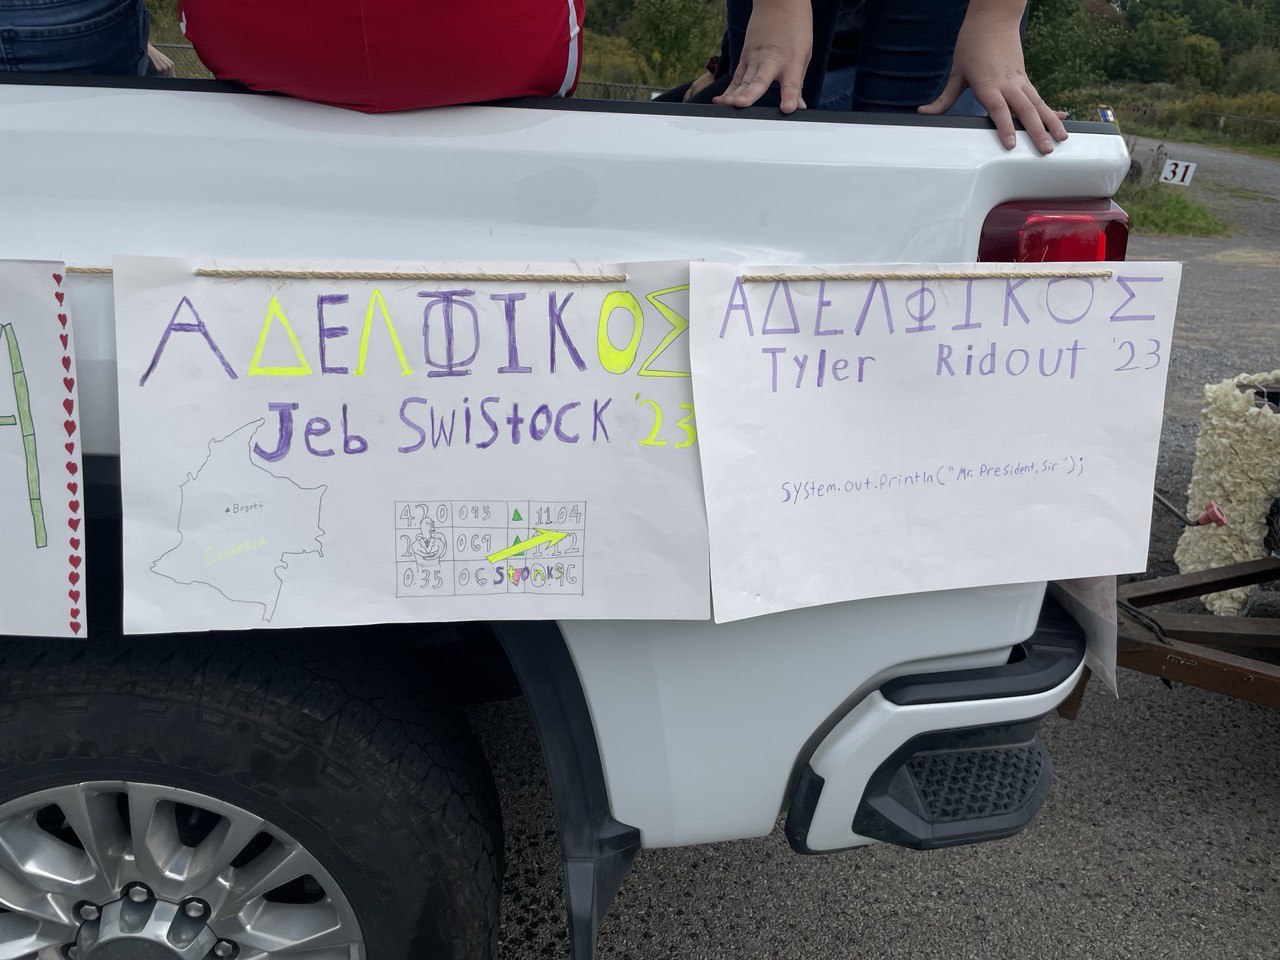 ΑΔΕΛΦΙΚΟΣ
Jeb Swistock '23
Bogotá
Colombia
420 095 ▲ 11.04
069 ▲ 1.12
0.35 06
Stonks
ΑΔΕΛΦΙΚΟΣ
Tyler Ridout '23
System.out.println("Mr. President, Sir");
31